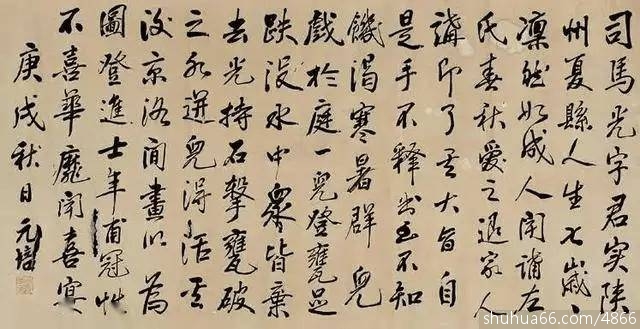 司馬光字君实陕
州夏縣人生七歲
凛然如成人闻誦左
氏春秋爱之退家人
講即了其大旨自
是手不释书至不知
饑渴寒暑群兒
戲於庭一兒登甕足
跌没水中眾皆棄
去光持石擊甕破
之水迸兒得活其
後京洛间畫以為
圖登進士年甫冠性
不喜華靡闻喜宴
庚戌秋日元培
shuhua66.com/4866